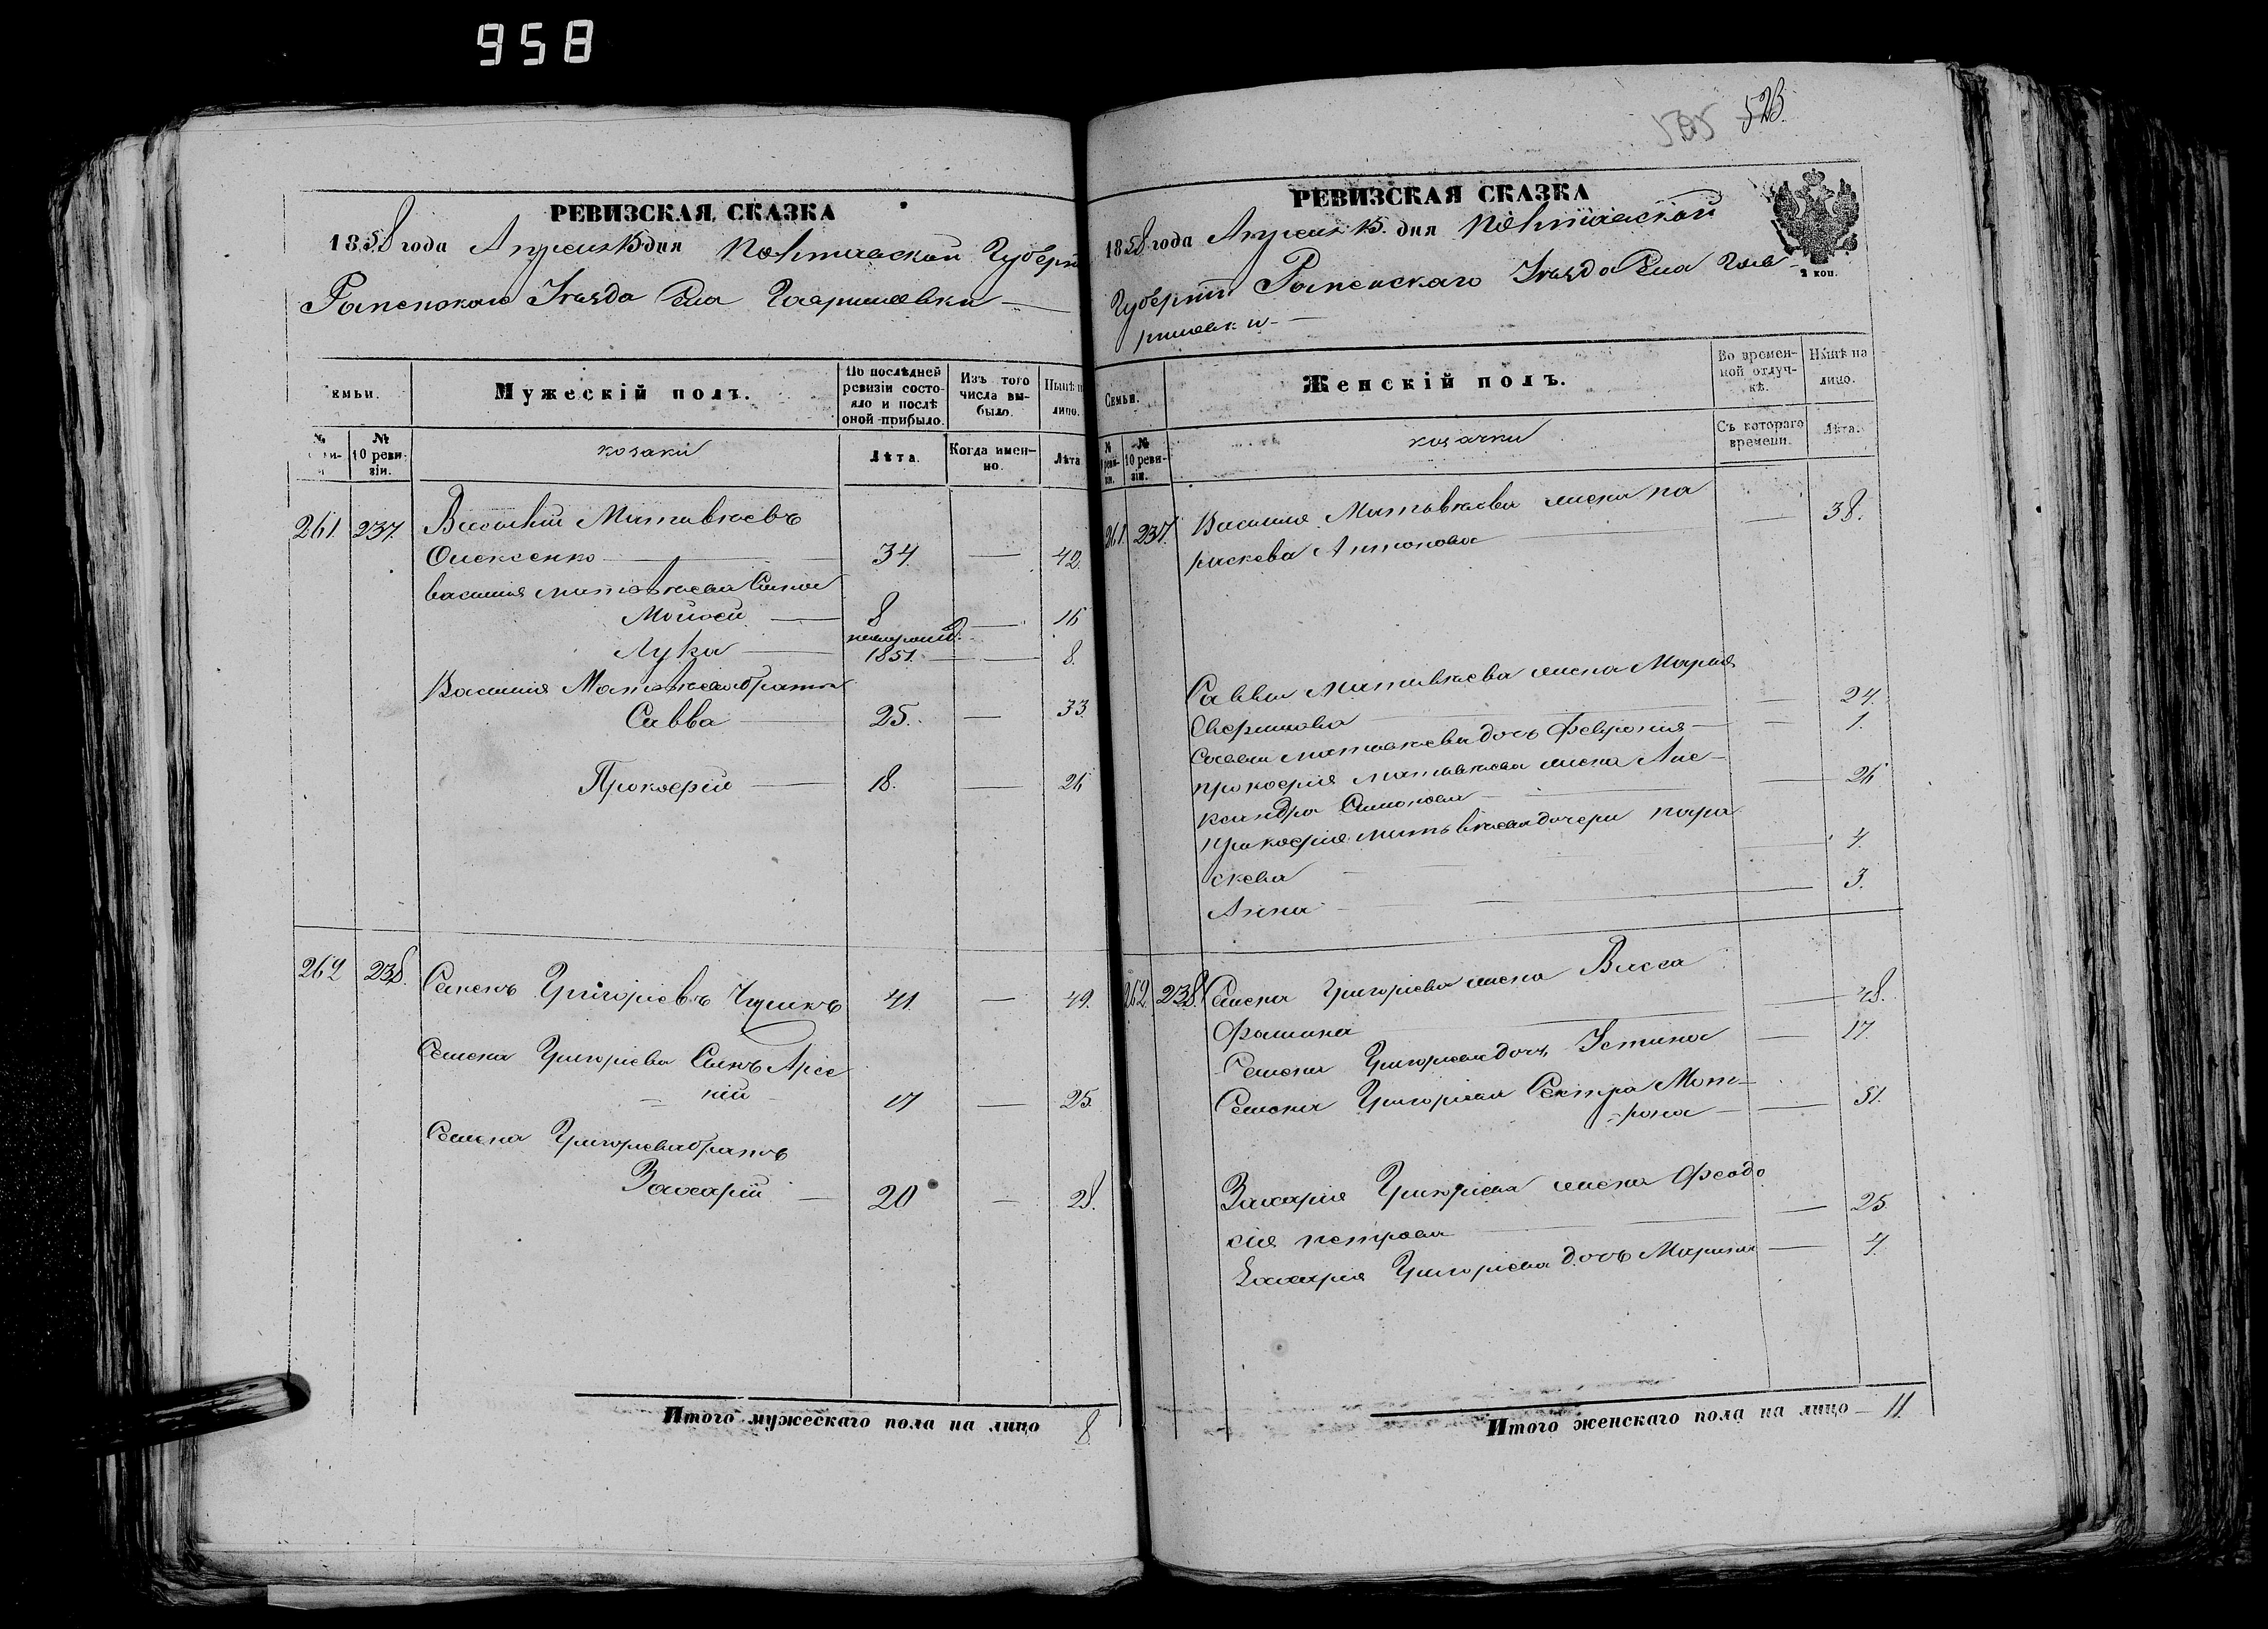 958
РЕВИЗСКАЯ СКАЗКА
1858 года Апреля 15 дня Полтавской Губерн
Роменскаго Уезда Села Гавришовки
емьи.
Мужескій полъ.
По послѣдней ревизіи состояло и послѣ оной прибыло.
Изъ того числа выбыло.
Нынѣ н лицо.
№
№ 10 ревизіи.
козаки
Лѣта.
Когда именно.
Лѣта
261. 237. Василий Матвѣевъ
Олексенко 34. 42.
Василия Матвѣева Сыны
Мойсей 8 16
новорожд.
Лука 1851. 8.
Василия Матвѣева братья
Савва 25. 33.
Прокофий 18. 26
262 238. Семенъ Григоріевъ 41. 49.
Семена Григоріева Сынъ Арсе
ній 17 25.
Семена Григоріева братъ
Захарій 20 28.
Итого мужескаго пола на лицо 8.
523.
РЕВИЗСКАЯ СКАЗКА
1858 года Апреля 15. дня Полтавской
2 коп.
Губерніи Роменскаго Уезда Села Гав
ришовки
Семьи.
Женскій полъ.
Во временной отлучкѣ.
Нынѣ на лицо.
№
№ 10 ревизіи.
козачки
Съ котораго времени.
Лѣта.
261. 237. Василия Матвѣева жена па
раскева Антонова 38.
Саввы Матвѣева жена Мария
24.
Саввы Матвѣева дочь Феврония 1.
Прокофия Матвѣева жена Але
ксандра Симонова 26
Прокофия Матвѣева дочери пара
скева 4.
Анна 3.
262 238. Семена Григоріева жена Васса
Фомина 48.
Семена Григоріева дочь Устина 17.
Семена Григоріева Сестра Мот
рона 51.
Захария Григоріева жена Феодо
сия петрова 25.
Захария Григоріева дочь Марина 4.
Итого женскаго пола на лицо 11.